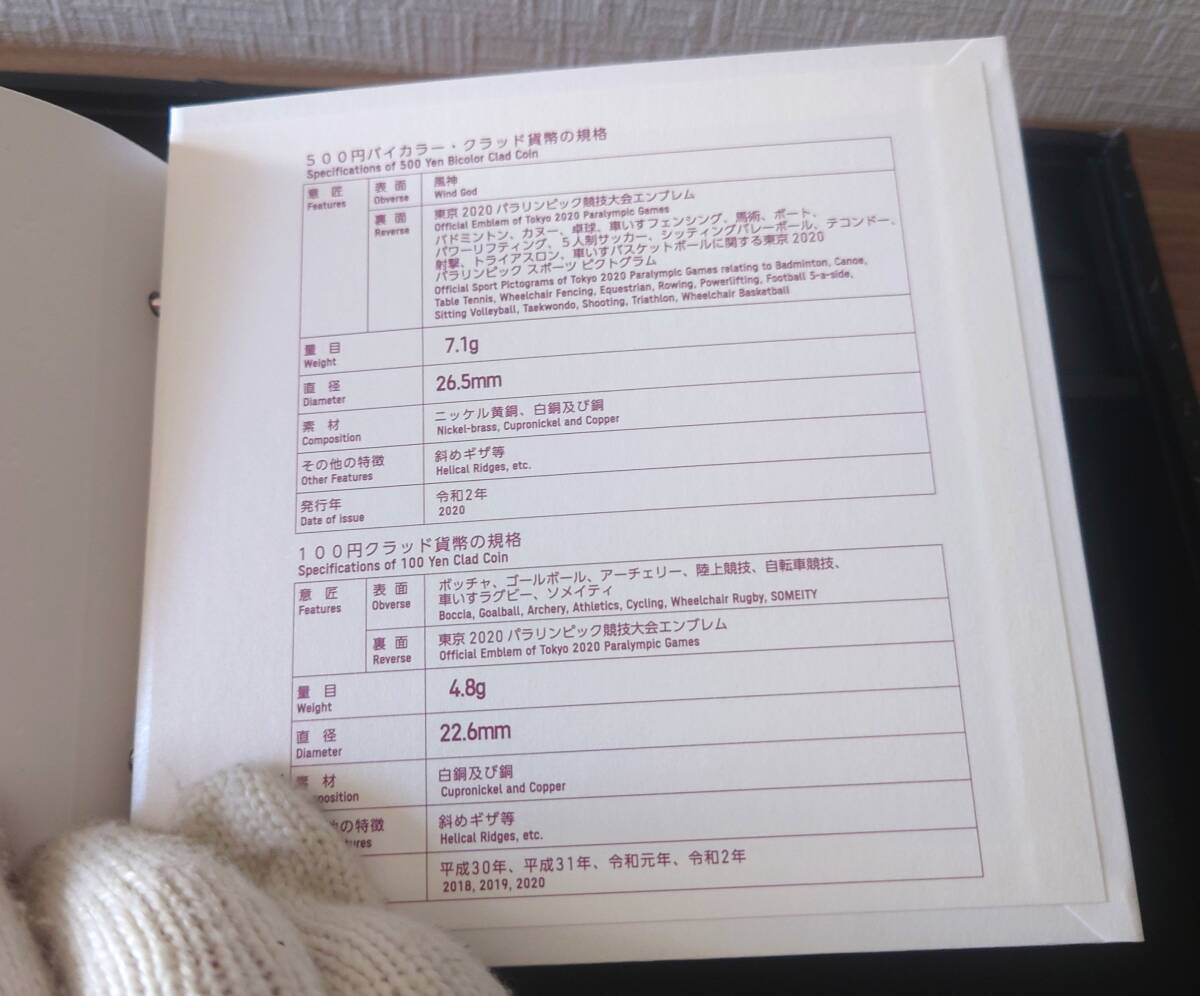 ５００円バイカラー・クラッド貨幣の規格
Specifications of 500 Yen Bicolor Clad Coin
意 匠
Features
表 面
Obverse
風神
Wind God
裏 面
Reverse
東京 2020 パラリンピック競技大会エンブレム
Official Emblem of Tokyo 2020 Paralympic Games
バドミントン、カヌー、卓球、車いすフェンシング、馬術、ボート、
パワーリフティング、５人制サッカー、シッティングバレーボール、テコンドー、
射撃、トライアスロン、車いすバスケットボールに関する東京 2020
パラリンピック スポーツ ピクトグラム
Official Sport Pictograms of Tokyo 2020 Paralympic Games relating to Badminton, Canoe,
Table Tennis, Wheelchair Fencing, Equestrian, Rowing, Powerlifting, Football 5-a-side,
Sitting Volleyball, Taekwondo, Shooting, Triathlon, Wheelchair Basketball
量 目
Weight
7.1g
直 径
Diameter
26.5mm
素 材
Composition
ニッケル黄銅、白銅及び銅
Nickel-brass, Cupronickel and Copper
その他の特徴
Other Features
斜めギザ等
Helical Ridges, etc.
発行年
Date of issue
令和2年
2020
１００円クラッド貨幣の規格
Specifications of 100 Yen Clad Coin
意 匠
Features
表 面
Obverse
ボッチャ、ゴールボール、アーチェリー、陸上競技、自転車競技、
車いすラグビー、ソメイティ
Boccia, Goalball, Archery, Athletics, Cycling, Wheelchair Rugby, SOMEITY
裏 面
Reverse
東京 2020 パラリンピック競技大会エンブレム
Official Emblem of Tokyo 2020 Paralympic Games
量 目
Weight
4.8g
直 径
Diameter
22.6mm
素 材
position
白銅及び銅
Cupronickel and Copper
他の特徴
tures
斜めギザ等
Helical Ridges, etc.
平成30年、平成31年、令和元年、令和2年
2018, 2019, 2020